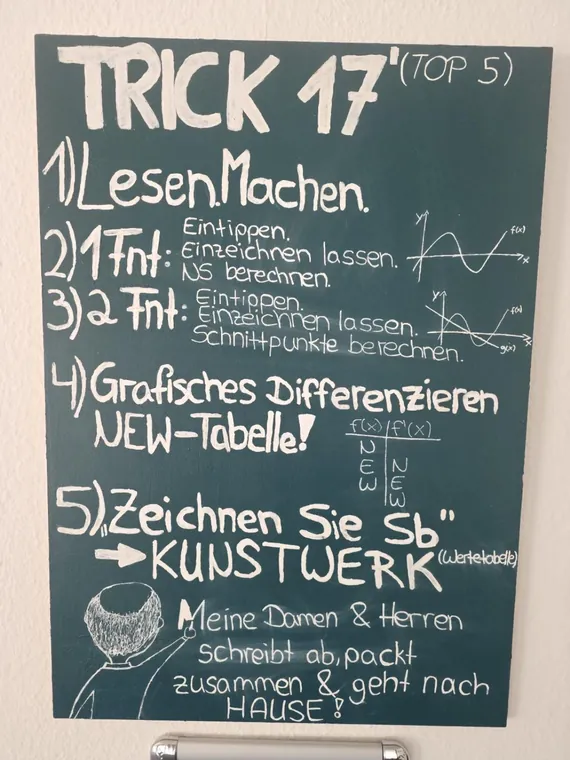 TRICK 17' (TOP 5)
1) Lesen. Machen.
2) 1 Fnt: Eintippen.
Einzeichnen lassen.
NS berechnen.
y
f(x)
x
3) 2 Fnt: Eintippen.
Einzeichnen lassen.
Schnittpunkte berechnen.
y
f(x)
x
g(x)
4) Grafisches Differenzieren
NEW-Tabelle!
f(x) f'(x)
N
E N
W E
W
5) „Zeichnen Sie Sb"
→ KUNSTWERK (Wertetabelle)
Meine Damen & Herren
schreibt ab, packt
zusammen & geht nach
HAUSE!